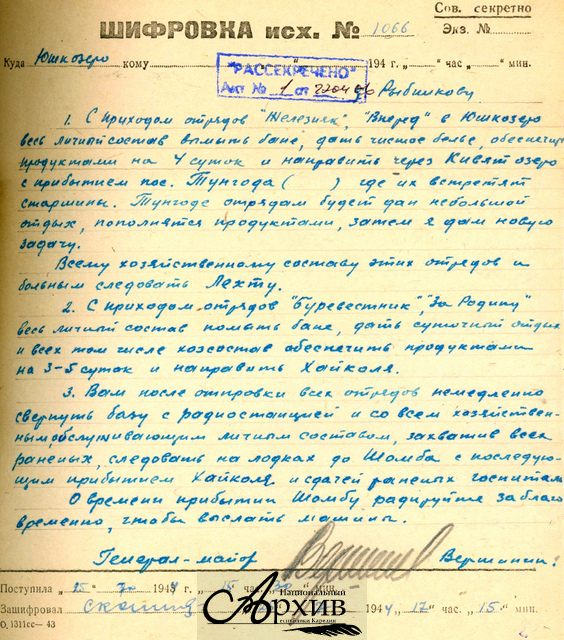 Сов. секретно
ШИФРОВКА исх. № 1066
Экз. №
Куда Юшкозеро кому 194 г. „ “ час „ “ мин.
"РАССЕКРЕЧЕНО"
Акт № 1 от
Рыбникову
1. С приходом отрядов "Железняк", "Вперед" в Юшкозеро
весь личный состав вымыть бане, дать чистое белье, обеспечить
продуктами на 4 суток и направить через Кивят озеро
с прибытием пос. Тунгода ( ) где их встретят
старшины. Тунгоде отрядам будет дан небольшой
отдых, пополнятся продуктами, затем я дам новую
задачу.
Всему хозяйственному составу этих отрядов и
больным следовать Лехту.
2. С приходом отрядов "Буревестник", "За Родину"
весь личный состав помыть бане, дать суточный отдых
и всех том числе хозсостав обеспечить продуктами
на 3-5 суток и направить Хайколя.
3. Вам после отправки всех отрядов немедленно
свернуть базу с радиостанцией и со всем хозяйствен-
ным, обслуживающим личным составом, захватив всех
раненых, следовать на лодках до Шомба с последую-
щим прибытием Хайколя и сдачей раненых госпиталь
О времени прибытии Шомбу радируйте заблаго
временно, чтобы выслать машины.
Генерал-майор Вершинин
Поступила 194 г. час мин.
Зашифровал 1944 „ 17 “ час. „ 15 “ мин.
О, 1311сс— 43
Национальный
АРХИВ
республики Карелия